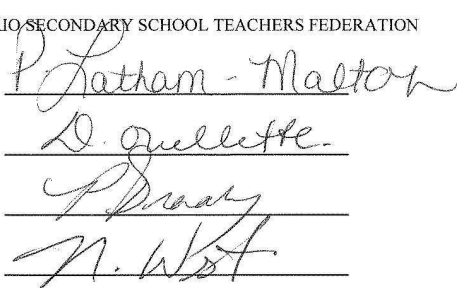 IO SECONDARY SCHOOL TEACHERS FEDERATION
P Latham - Malton
D. Ouellette.
P
N. West